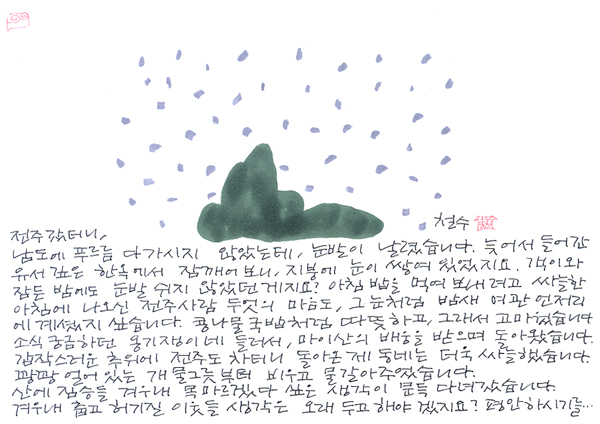 철수
전주갔더니,
남도에 푸르름 다가시지 않았는데, 눈발이 날렸습니다. 늦어서 들어간
유서 깊은 한옥에서 잠깨어보니, 지붕에 눈이 쌓여 있었지요. 객이와
잠든 밤에도 눈발 쉬지 않았던게지요? 아침밥을 먹여 보내려고 쌀쌀한
아침에 나오신 전주사람 두엇의 마음도, 그 눈처럼 밤새 여관 언저리
에 계셨지 싶습니다. 콩나물국밥처럼 따뜻하고, 그래서 고마웠습니다
소식 궁금하던 옹기쟁이네 들러서, 마이산의 배웅을 받으며 돌아왔습니다.
갑작스러운 추위에 전주도 차더니 돌아온 제 동네는 더욱 쌀쌀했습니다.
꽝꽝 얼어 있는 개 물그릇부터 비우고 물 갈아주었습니다.
산에 짐승들 겨우내 목마르겠다 싶은 생각이 문득 다녀갔습니다.
겨우내 춥고 허기질 이웃들 생각은 오래 두고 해야 겠지요? 평안하시기를…